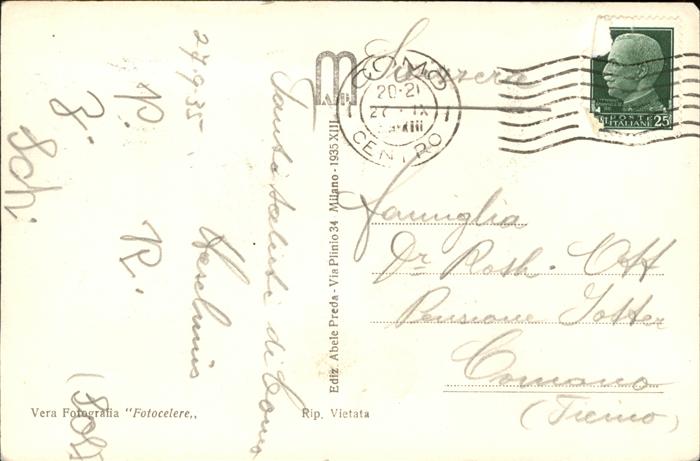 Svizzera
COMO
20-21
27 · IX
XIII
CENTRO
POSTE
ITALIANE 25
27.9.35
Tanti saluti di Como
P.
R.
Sch
Ediz. Abele Preda - Via Plinio 34 Milano - 1935 XIII
Famiglia
Dr Roth. Ott
Pensione Potter
Comano
(Ticino)
Vera Fotografia "Fotocelere,,
Rip. Vietata